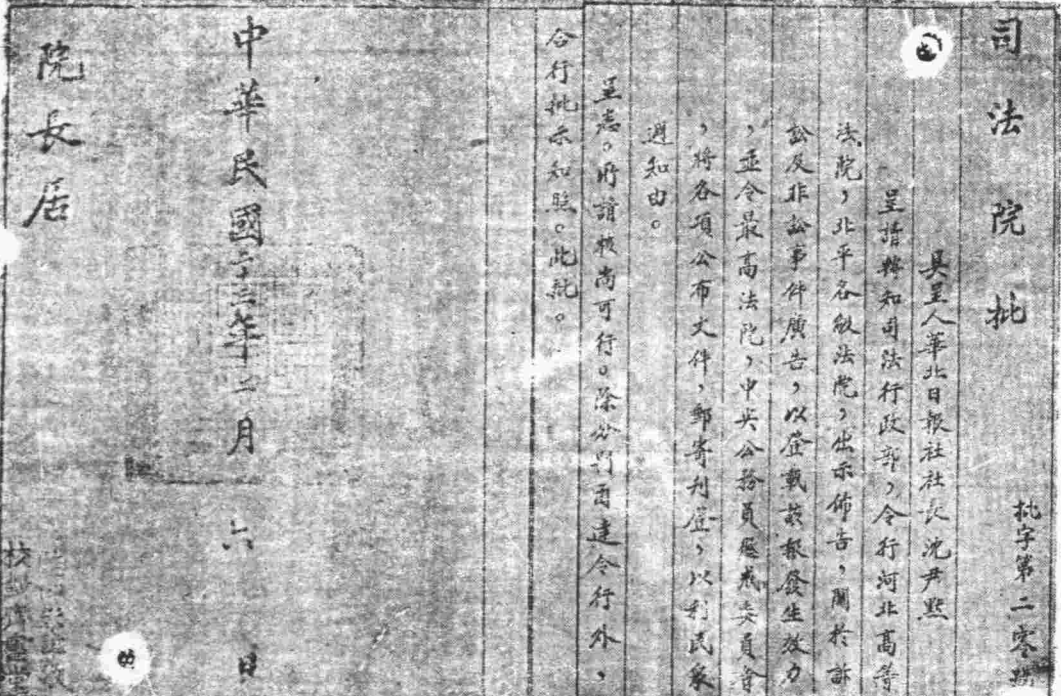 司法院批
批字第二零號
具呈人華北日報社社長沈尹默
呈請轉知司法行政部，令行河北高等
法院，北平各級法院，出示佈告，關於訴
訟及非訟事件廣告，以登載該報發生效力
，並令最高法院，中央公務員懲戒委員會
，將各項公布文件，郵寄刊登，以利民衆
週知由。
呈悉。所請核尚可行。除分別函達令行外，
合行批示知照。此批。
中華民國二十三年 月 六 日
院長居